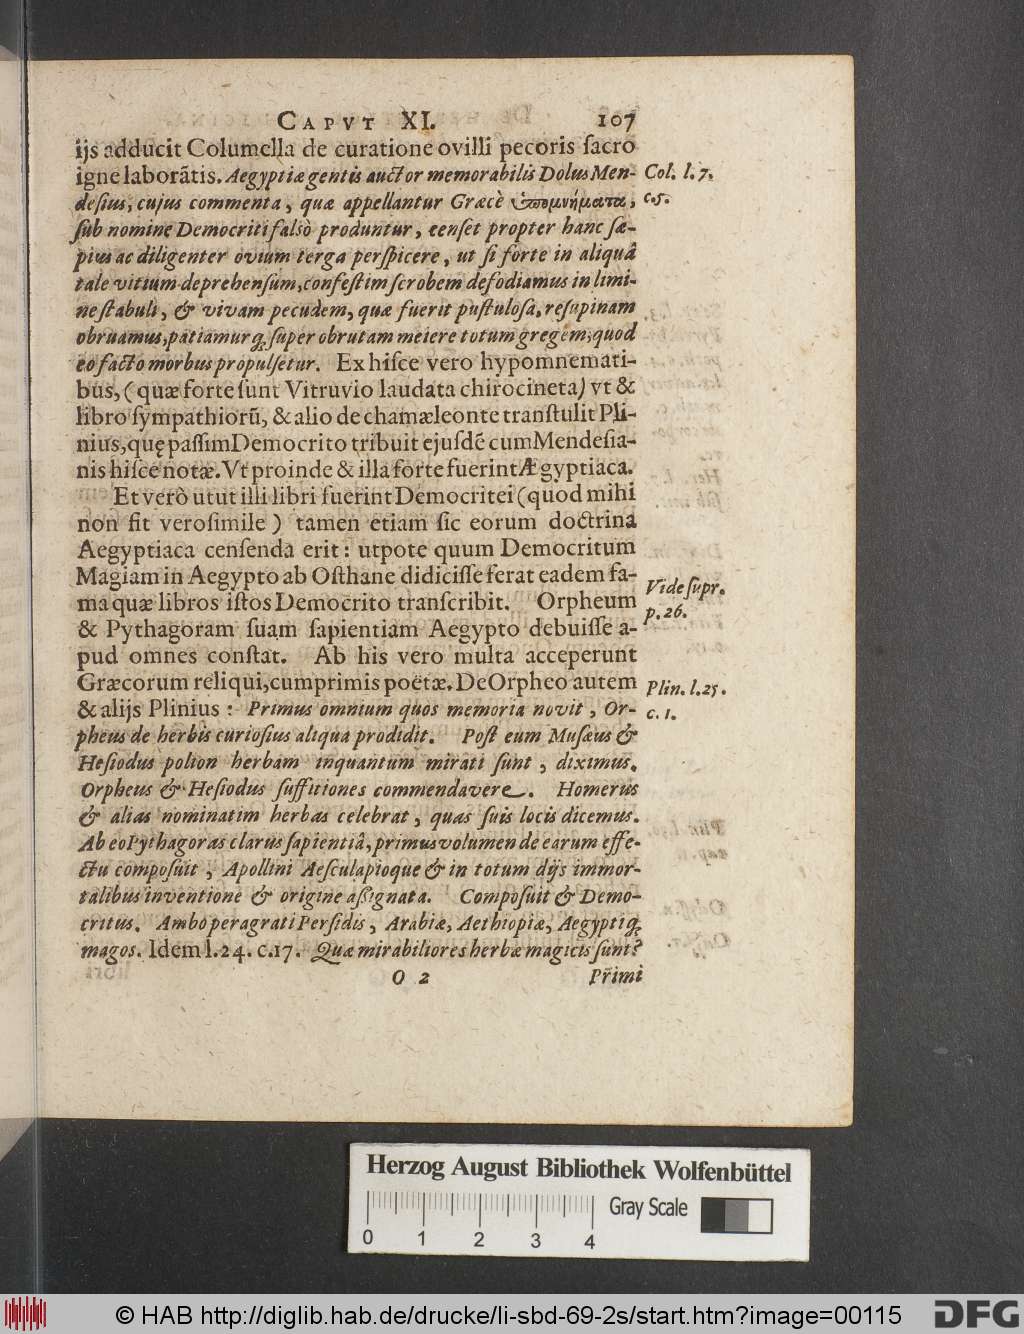 CAPVT XI. 107
ijs adducit Columella de curatione ovilli pecoris sacro
igne laborātis. Aegyptiæ gentis auctor memorabilis Dolus Men- Col. l. 7.
desius, cujus commenta, quæ appellantur Græcè ὑπομνήματα, c. 5.
sub nomine Democriti falsò produntur, censet propter hanc sæ-
pius ac diligenter ovium terga perspicere, ut si forte in aliquâ
tale vitium deprehensum, confestim scrobem defodiamus in limi-
ne stabuli, & vivam pecudem, quæ fuerit pustulosa, resupinam
obruamus, patiamurq; super obrutam meiere totum gregem, quod
eo facto morbus propulsetur. Ex hisce vero hypomnemati-
bus, (quæ forte sunt Vitruvio laudata chirocineta) vt &
libro sympathiorū, & alio de chamæleonte transtulit Pli-
nius, quę passim Democrito tribuit ejusdē cum Mendesia-
nis hisce notæ. Vt proinde & illa forte fuerint Ægyptiaca.
Et verò utut illi libri fuerint Democritei (quod mihi
non fit verosimile) tamen etiam sic eorum doctrina
Aegyptiaca censenda erit: utpote quum Democritum
Magiam in Aegypto ab Osthane didicisse ferat eadem fa- Vide supr.
ma quæ libros istos Democrito transcribit. Orpheum p. 26.
& Pythagoram suam sapientiam Aegypto debuisse a-
pud omnes constat. Ab his vero multa acceperunt
Græcorum reliqui, cumprimis poëtæ. De Orpheo autem Plin. l. 25.
& alijs Plinius: Primus omnium quos memoria novit, Or- c. 1.
pheus de herbis curiosius aliqua prodidit. Post eum Musæus &
Hesiodus polion herbam inquantum mirati sunt, diximus.
Orpheus & Hesiodus suffitiones commendavere. Homerus
& alias nominatim herbas celebrat, quas suis locis dicemus.
Ab eo Pythagoras clarus sapientiâ, primus volumen de earum effe-
ctu composuit, Apollini Aesculapioque & in totum dijs immor-
talibus inventione & origine assignata. Composuit & Demo-
critus. Ambo peragrati Persidis, Arabiæ, Aethiopiæ, Aegyptiq;
magos. Idem l. 24. c. 17. Quæ mirabiliores herbæ magicis sunt?
O 2 Primi
Herzog August Bibliothek Wolfenbüttel
Gray Scale
0 1 2 3 4
© HAB http://diglib.hab.de/drucke/li-sbd-69-2s/start.htm?image=00115
DFG